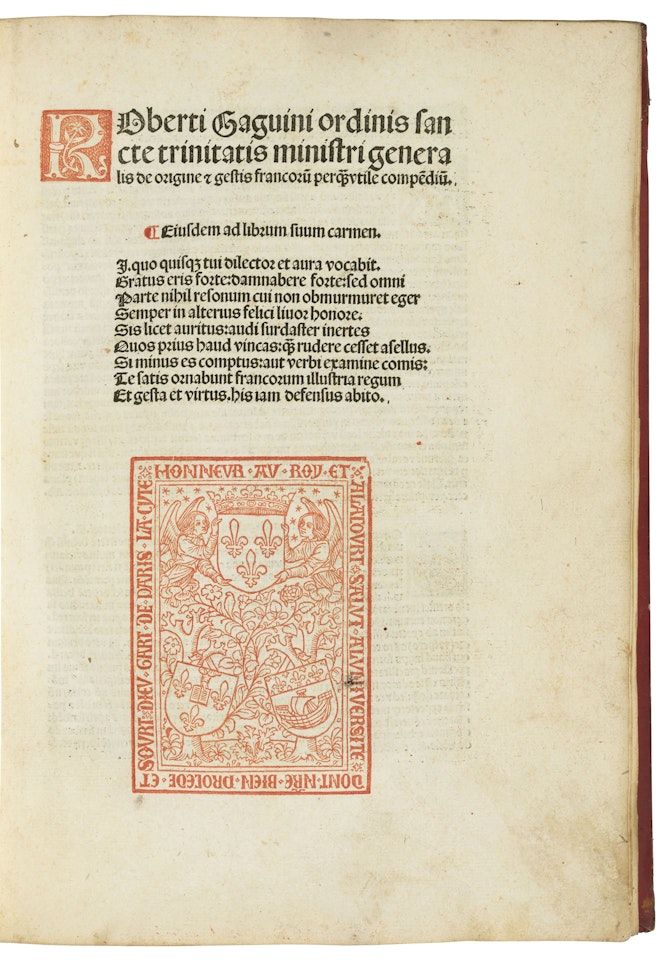 ROberti Gaguini ordinis san
cte trinitatis ministri genera
lis de origine ⁊ gestis francorũ perq̃ꝫ vtile compẽdiũ.
¶ Eiusdem ad librum suum carmen.
I. quo quisqꝫ tui dilector et aura vocabit.
Gratus eris forte: damnabere forte: sed omni
Parte nihil resonum cui non obmurmuret eger
Semper in alterius felici liuor honore.
Sis licet auritus: audi surdaster inertes
Quos prius haud vincas: q̃ꝫ rudere cesset asellus.
Si minus es comptus: aut verbi examine comis:
Te satis ornabunt francorum illustria regum
Et gesta et virtus. his iam defensus abito.
HONNEVR · AV · ROY · ET ·
ALACOVRT · SALVT · ALVNIVERSITE
DONT · NR̃E · BIEN · PROCEDE · ET
SOVRT · DIEV · GART · DE · PARIS · LA · CITE